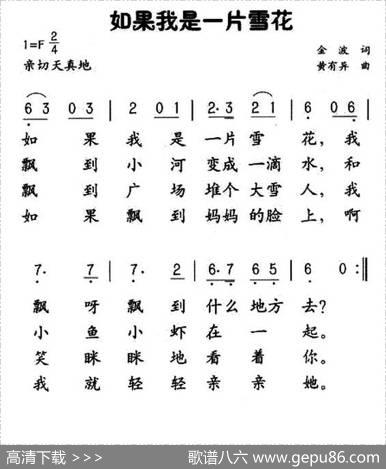 如果我是一片雪花
1=F 2/4
金波 词
亲切天真地
黄有异 曲
6 3 0 3 | 2 0 1 | 2·3 2 1 | 6 0 6 |
如 果 我 是 一 片 雪 花, 我
飘 到 小 河 变 成 一 滴 水, 和
飘 到 广 场 堆 个 大 雪 人, 我
如 果 飘 到 妈 妈 的 脸 上, 啊
7· 7 | 7· 2 | 6·7 6 5 | 6 0 :||
飘 呀 飘 到 什 么 地 方 去?
小 鱼 小 虾 在 一 起。
笑 眯 眯 地 看 着 你。
我 就 轻 轻 亲 亲 她。
高清下载 >>> 歌谱八六 www.gepu86.com